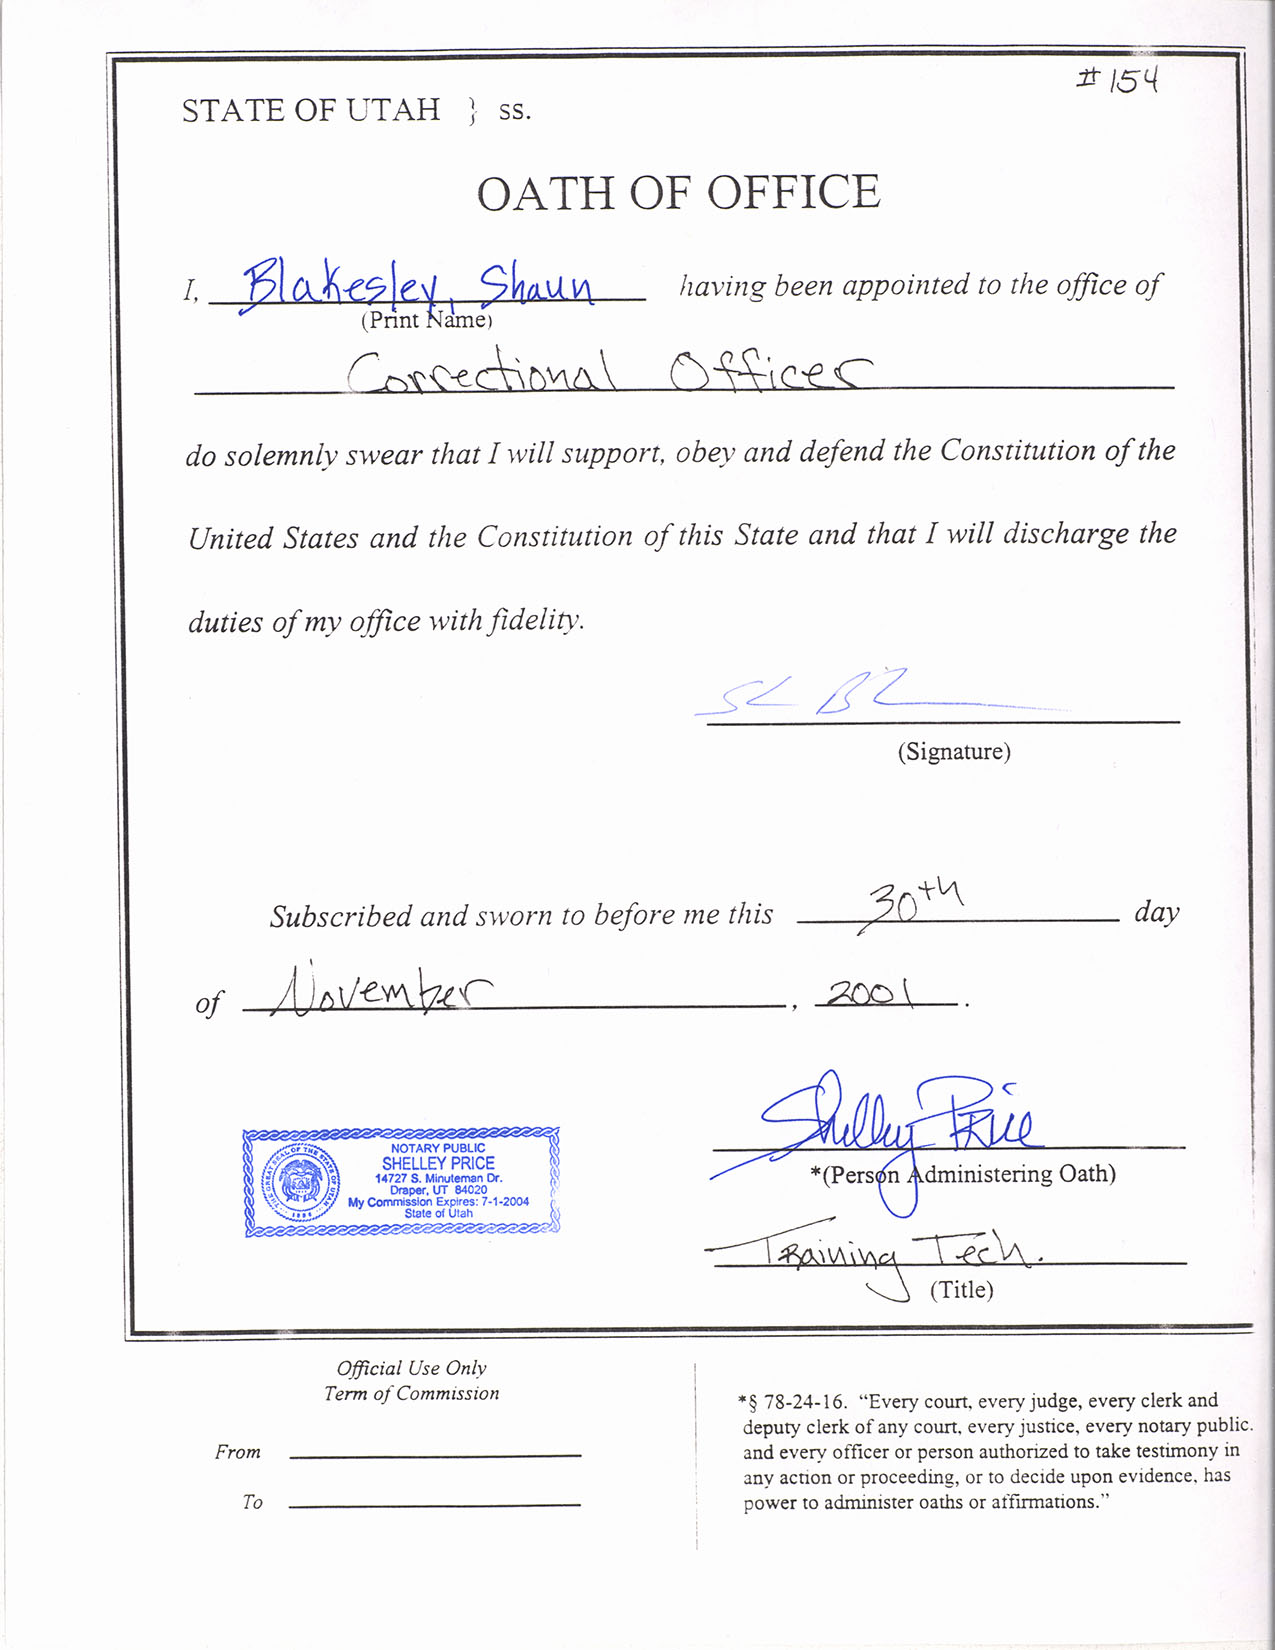 #154
STATE OF UTAH } ss.
OATH OF OFFICE
I, Blakesley, Shaun having been appointed to the office of
(Print Name)
Correctional Officer
do solemnly swear that I will support, obey and defend the Constitution of the
United States and the Constitution of this State and that I will discharge the
duties of my office with fidelity.
(Signature)
Subscribed and sworn to before me this 30th day
of November, 2001.
Shelley Price
*(Person Administering Oath)
NOTARY PUBLIC
SHELLEY PRICE
14727 S. Minuteman Dr.
Draper, UT 84020
My Commission Expires: 7-1-2004
State of Utah
THE GREAT SEAL OF THE STATE OF UTAH
1896
Training Tech.
(Title)
Official Use Only
Term of Commission
From
To
*§ 78-24-16. “Every court, every judge, every clerk and
deputy clerk of any court, every justice, every notary public.
and every officer or person authorized to take testimony in
any action or proceeding, or to decide upon evidence, has
power to administer oaths or affirmations.”